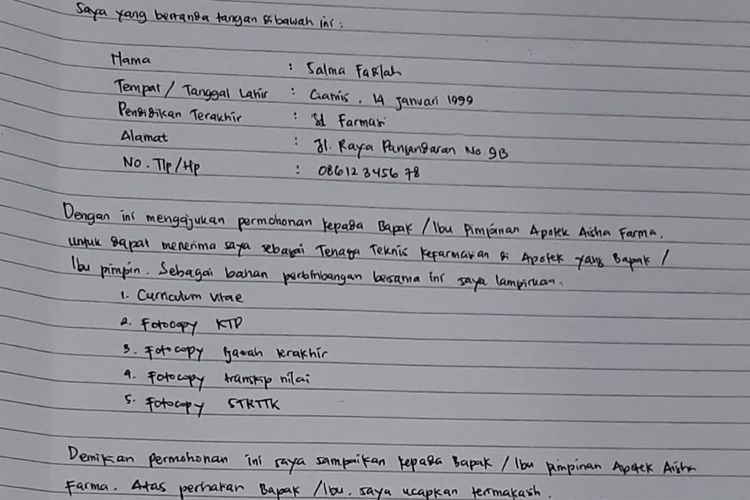 Saya yang bertanda tangan dibawah ini :
Nama : Salma Fadlah
Tempat / Tanggal Lahir : Ciamis, 14 Januari 1999
Pendidikan Terakhir : S1 Farmasi
Alamat : Jl. Raya Pangandaran No. 9B
No. Tlp / Hp : 08612345678
Dengan ini mengajukan permohonan kepada Bapak / Ibu Pimpinan Apotek Aisha Farma,
untuk dapat menerima saya sebagai Tenaga Teknis Kefarmasian di Apotek yang Bapak /
Ibu pimpin. Sebagai bahan pertimbangan bersama ini saya lampirkan.
1. Curriculum Vitae
2. Fotocopy KTP
3. Fotocopy Ijazah terakhir
4. Fotocopy transkip nilai
5. Fotocopy STRTTK
Demikian permohonan ini saya sampaikan kepada Bapak / Ibu pimpinan Apotek Aisha
Farma. Atas perhatian Bapak / Ibu. saya ucapkan terimakasih.